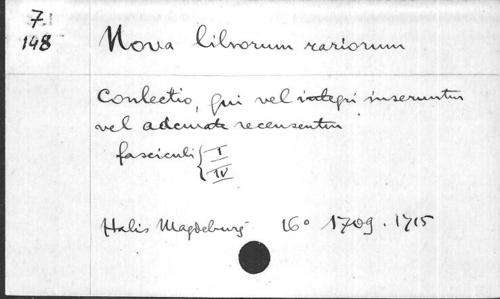 7.
148
Nova librorum rariorum
Conlectio, qui vel integri inseruntur
vel adcurate recensentur
fasciculi { I
IV
Halis Magdeburg 16° 1709 . 1715